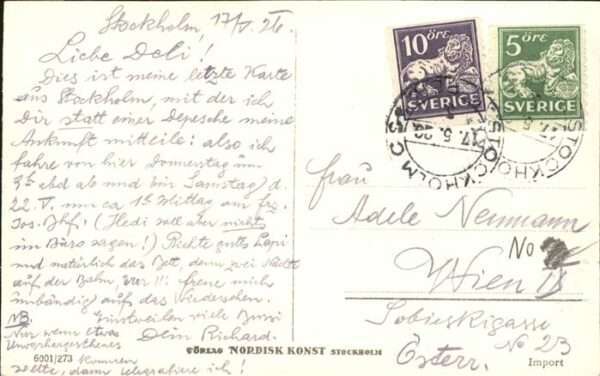 Stockholm, 17/V. 26.
Liebe Deli!
Dies ist meine letzte Karte
aus Stockholm, mit der ich
Dir statt einer Depesche meine
Ankunft mitteile: also ich
fahre von hier Donnerstag um
abd ab und bin Samstag d.
22. V. um ca Mittag am Frz.
Jos. Bhf. (Hedi soll aber nichts
im Büro sagen!) Richte gutes Papi
und natürlich das Bett, denn zwei Nächte
auf der Bahn, brr!!! freue mich
unbändig auf das Wiedersehen.
Einstweilen viele Bussi
Dein Richard.
NB.
Nur wenn etwas
Unvorhergesehenes
kommen
sollte, dann telegrafiere ich!
10 ÖRE
SVERIGE
5 ÖRE
SVERIGE
STOCKHOLM
17.5.26
STOCKHOLM
Frau
Adele Neumann
No
Wien
Sobieskigasse
No 23
Österr.
6001/273
FÖRLAG NORDISK KONST STOCKHOLM
Import